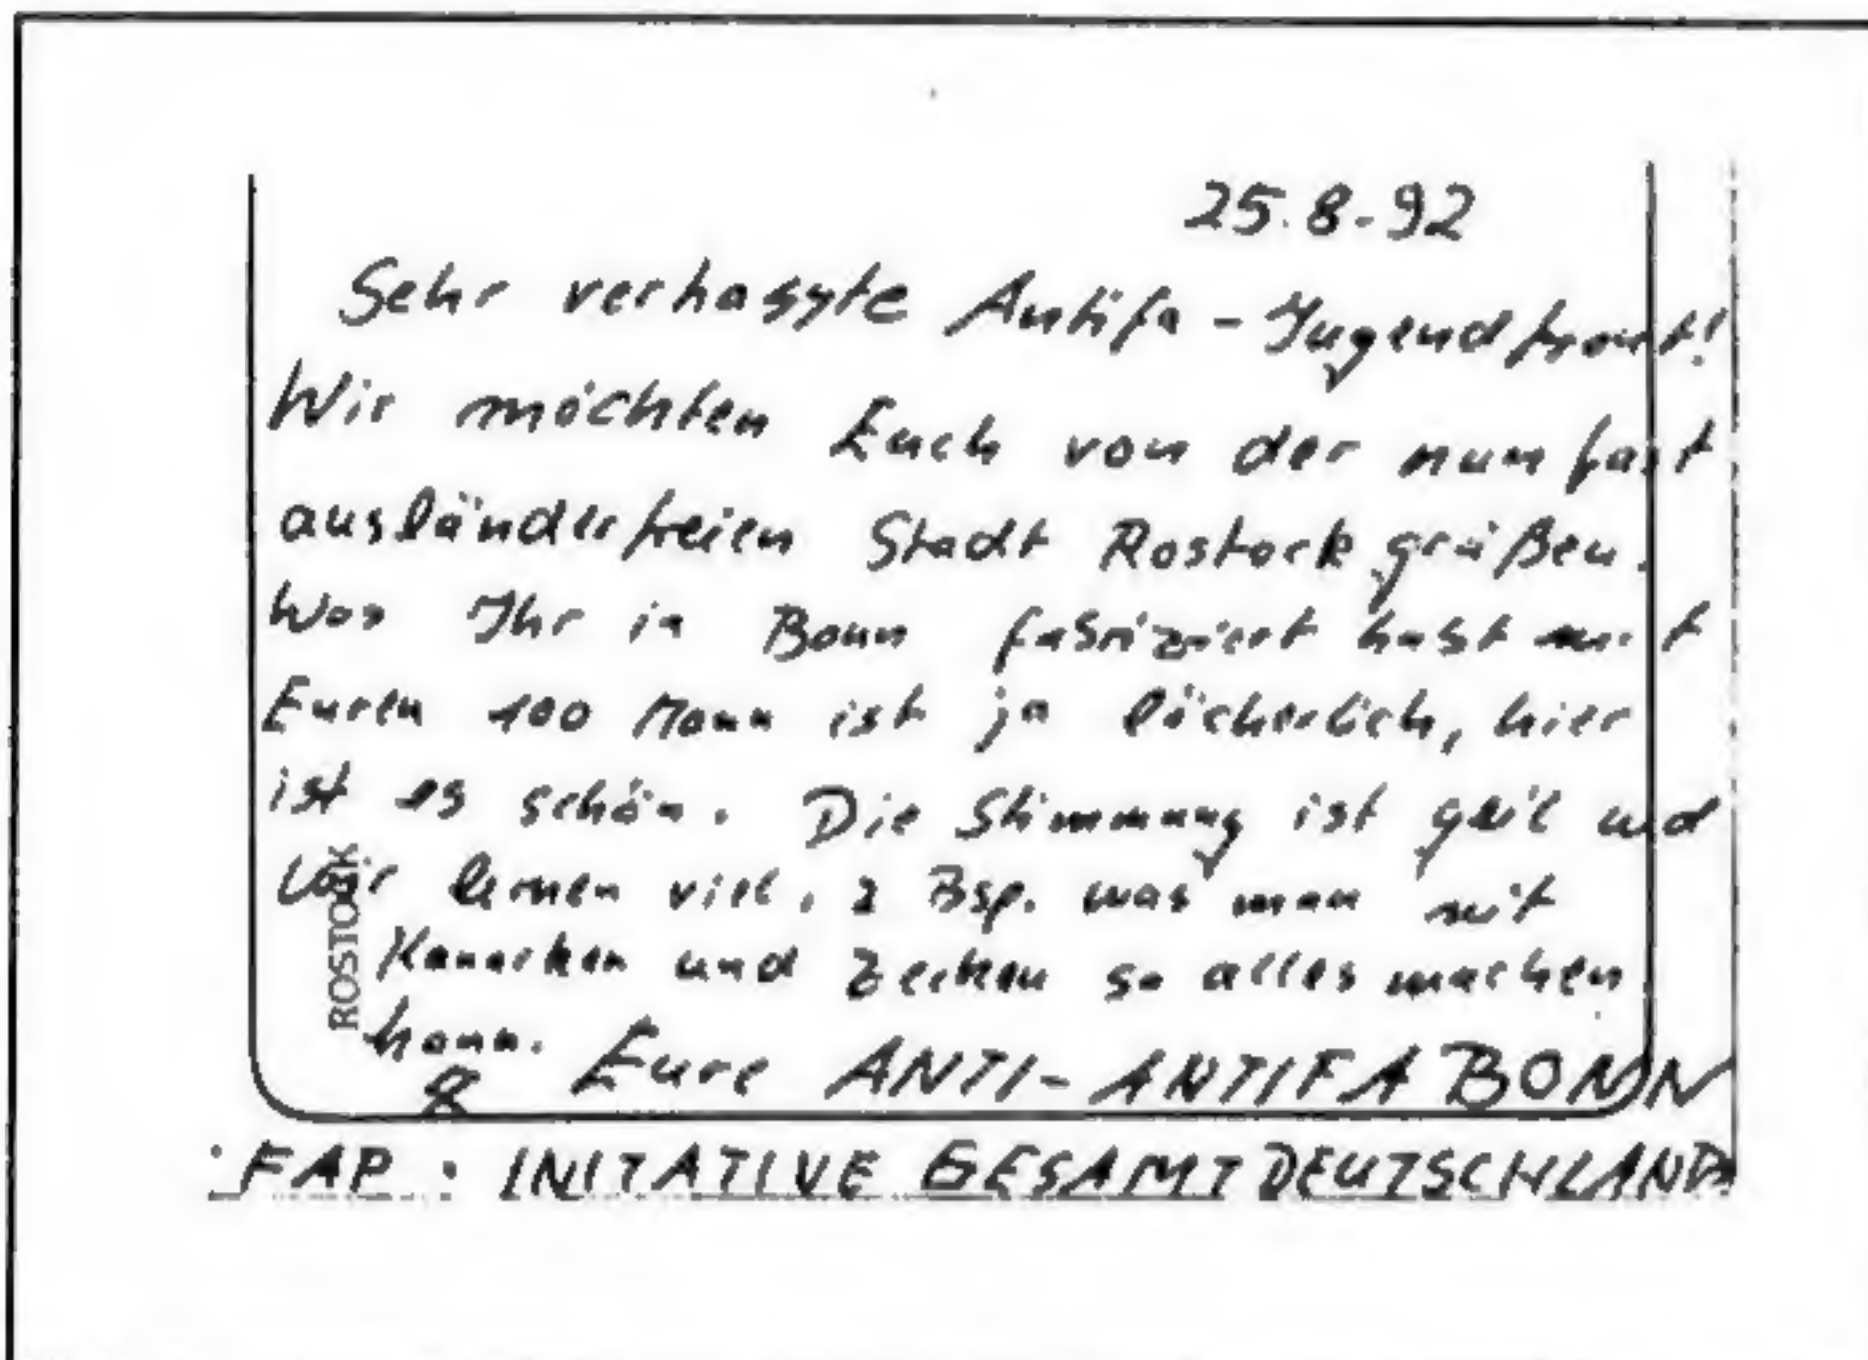 25.8.-92
Sehr verhasste Antifa-Jugendfront!
Wir möchten Euch von der nun fast
ausländerfreien Stadt Rostock grüßen.
Was Ihr in Bonn fabriziert habt mit
Euren 100 Mann ist ja lächerlich, hier
ist es schön. Die Stimmung ist geil und
Wir lernen viel, z Bsp. was man mit
Kanacken und Zecken so alles machen
kann. Eure ANTI-ANTIFA BONN
&
FAP : INITATIVE GESAMTDEUTSCHLAND
ROSTOCK